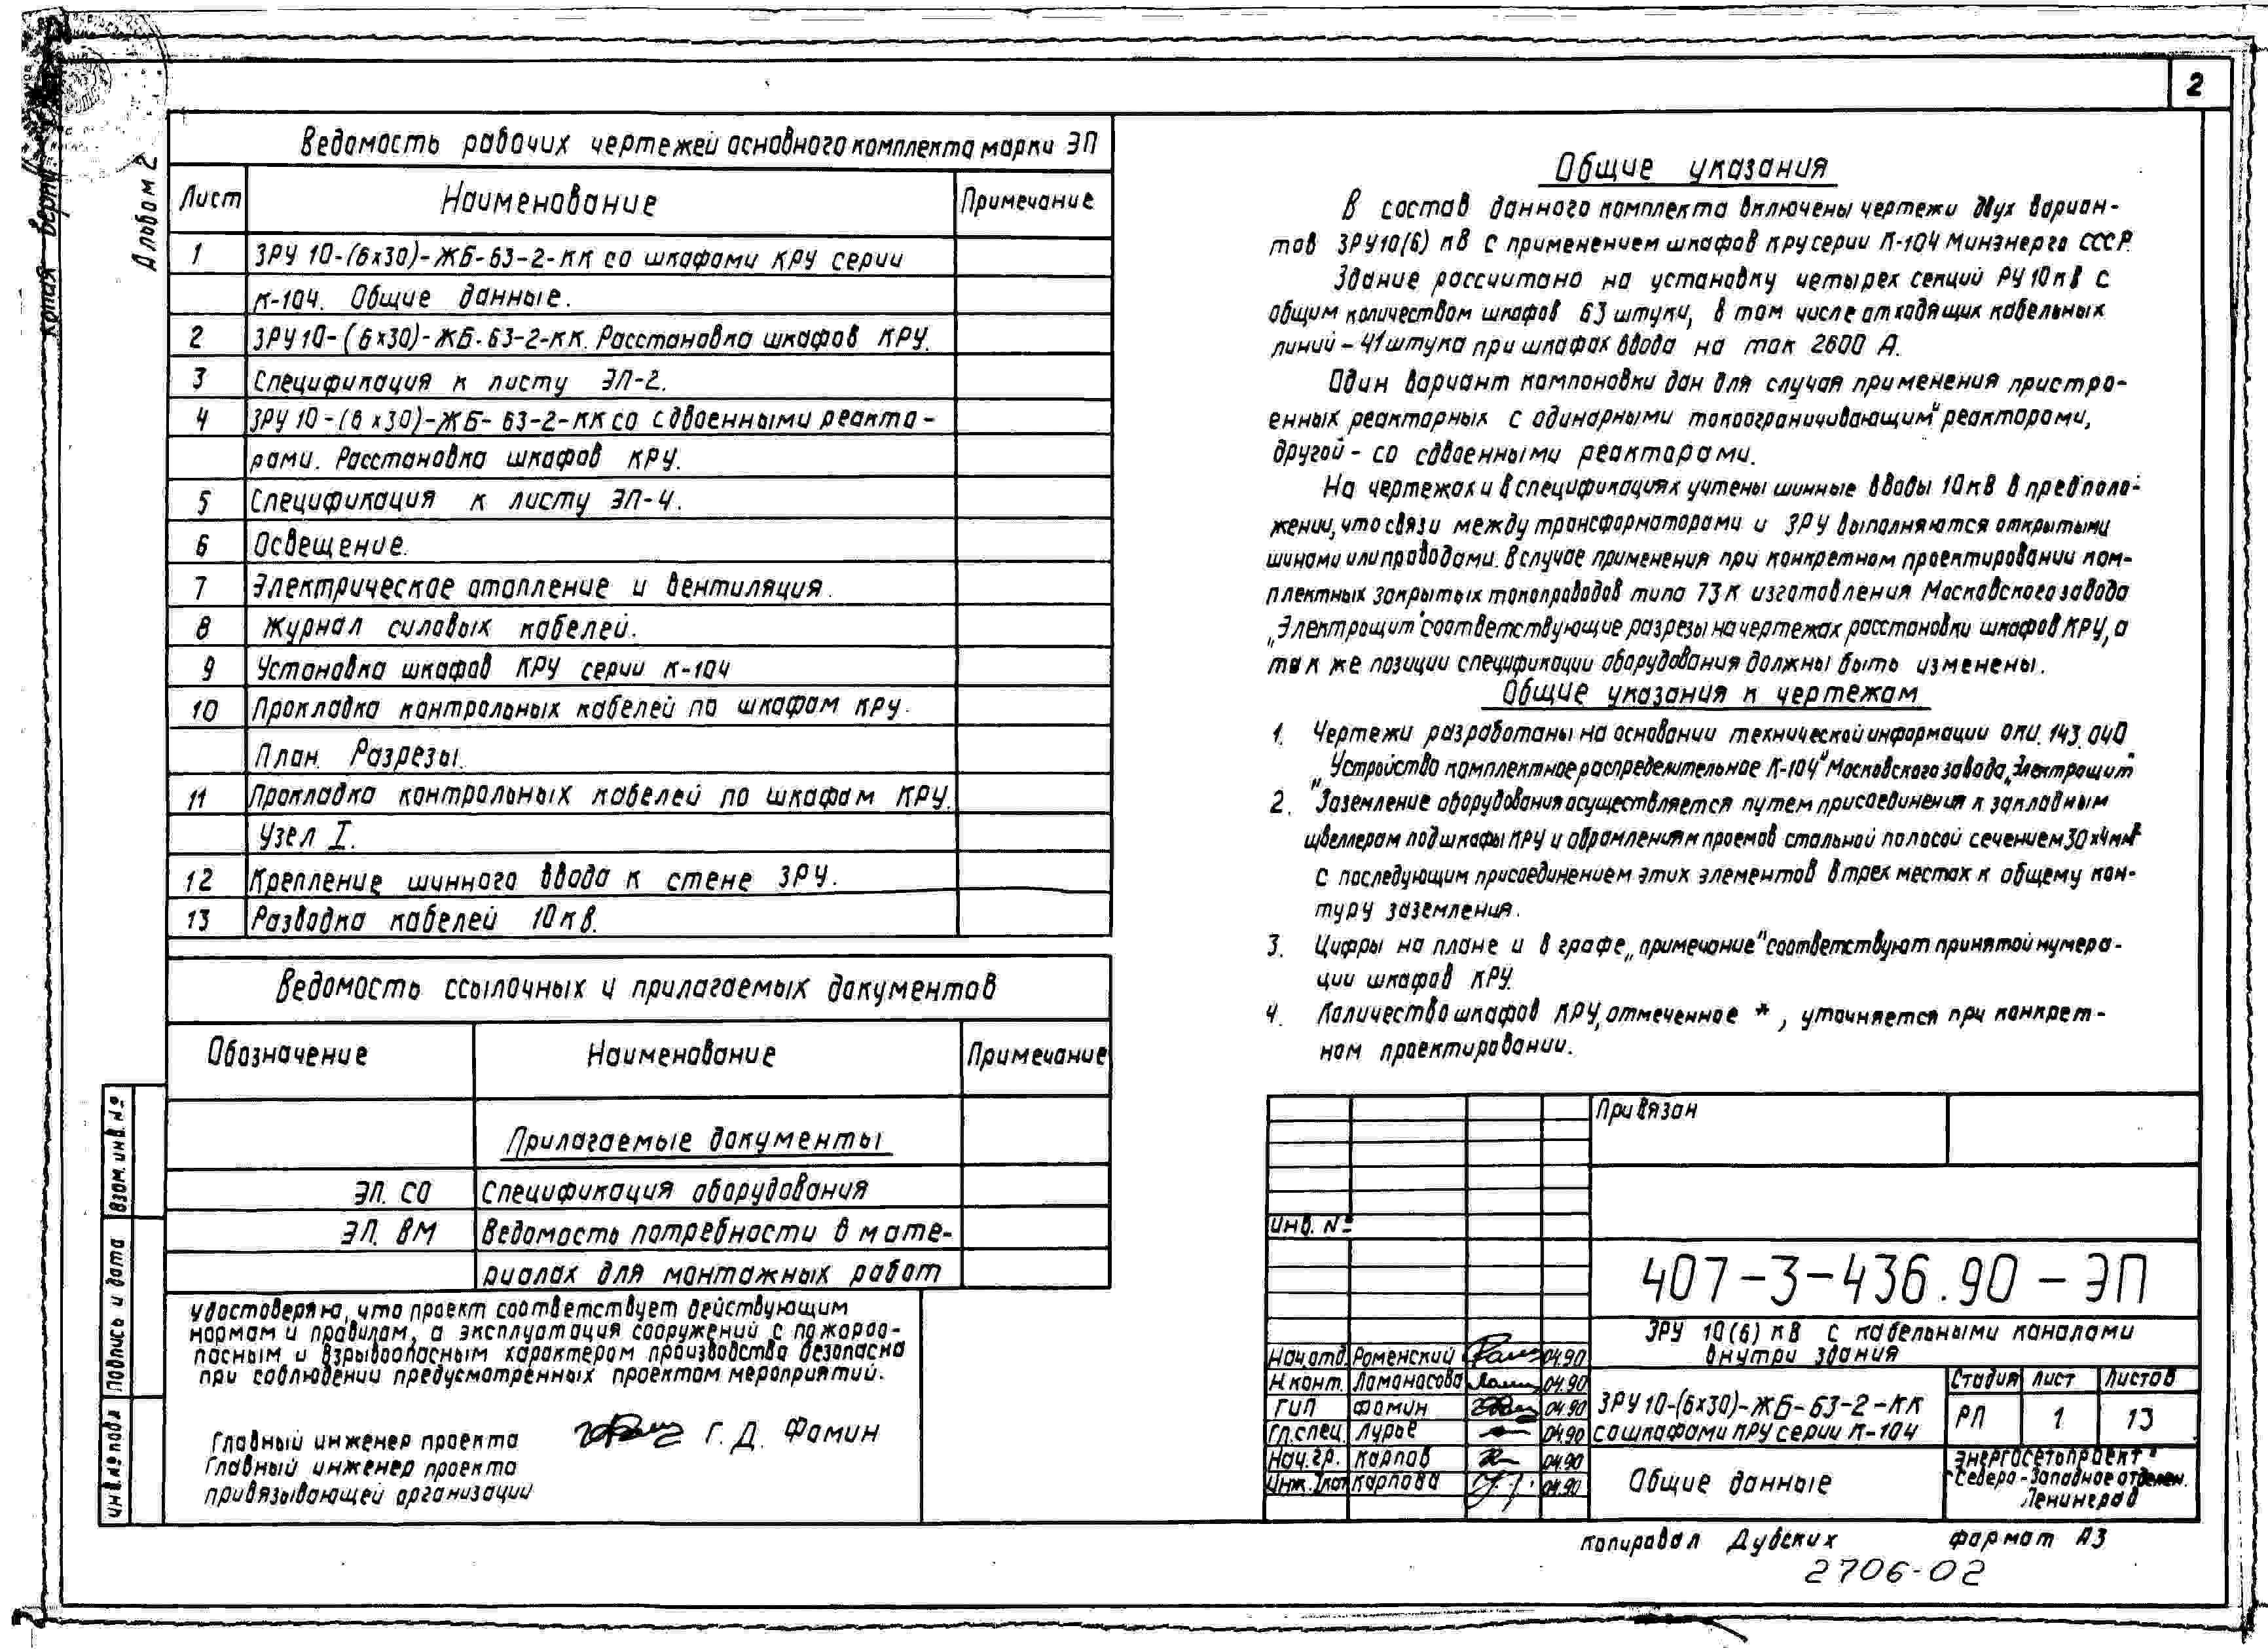 2
Копия верна
Альбом 2
Ведомость рабочих чертежей основного комплекта марки ЭП
Лист Наименование Примечание
1 ЗРУ 10-(6х30)-ЖБ-63-2-КК со шкафами КРУ серии
К-104. Общие данные.
2 ЗРУ 10-(6х30)-ЖБ-63-2-КК. Расстановка шкафов КРУ.
3 Спецификация к листу ЭП-2.
4 ЗРУ 10-(6х30)-ЖБ-63-2-КК со сдвоенными реакто-
рами. Расстановка шкафов КРУ.
5 Спецификация к листу ЭП-4.
6 Освещение.
7 Электрическое отопление и вентиляция.
8 Журнал силовых кабелей.
9 Установка шкафов КРУ серии К-104
10 Прокладка контрольных кабелей по шкафам КРУ.
План. Разрезы.
11 Прокладка контрольных кабелей по шкафам КРУ.
Узел I.
12 Крепление шинного ввода к стене ЗРУ.
13 Разводка кабелей 10кв.
Ведомость ссылочных и прилагаемых документов
Обозначение Наименование Примечание
Прилагаемые документы
ЭП. СО Спецификация оборудования
ЭП. ВМ Ведомость потребности в мате-
риалах для монтажных работ
Удостоверяю, что проект соответствует действующим
нормам и правилам, а эксплуатация сооружений с пожароо-
пасным и взрывоопасным характером производства безопасна
при соблюдении предусмотренных проектом мероприятий.
Главный инженер проекта Г. Д. Фомин
Главный инженер проекта
привязывающей организации
Взам. инв. №
Подпись и дата
Инв. № подл
Общие указания
В состав данного комплекта включены чертежи двух вариан-
тов ЗРУ10(6) кв с применением шкафов КРУ серии К-104 Минэнерго СССР.
Здание рассчитано на установку четырех секций РУ 10кв с
общим количеством шкафов 63 штуки, в том числе отходящих кабельных
линий - 41 штука при шкафах ввода на ток 2600 А.
Один вариант компоновки дан для случая применения пристро-
енных реакторных с одинарными токоограничивающим" реакторами,
другой - со сдвоенными реакторами.
На чертежах и в спецификациях учтены шинные вводы 10кв в предполо-
жении, что связи между трансформаторами и ЗРУ выполняются открытыми
шинами или проводами. В случае применения при конкретном проектировании ком-
плектных закрытых токопроводов типа ТЗК изготовления Московского завода
„Электрощит" соответствующие разрезы на чертежах расстановки шкафов КРУ, а
так же позиции спецификации оборудования должны быть изменены.
Общие указания к чертежам
1. Чертежи разработаны на основании технической информации ОКИ. 143. 040
„Устройство комплектное распределительное К-104" Московского завода „Электрощит"
2. Заземление оборудования осуществляется путем присоединения к закладным
швеллерам под шкафы КРУ и обрамлениям проемов стальной полосой сечением 30х4мм²
с последующим присоединением этих элементов в трех местах к общему кон-
туру заземления.
3. Цифры на плане и в графе „примечание" соответствуют принятой нумера-
ции шкафов КРУ.
4. Количество шкафов КРУ, отмеченное *, уточняется при конкрет-
ном проектировании.
Привязан
Инв. №
407-3-436.90-ЭП
ЗРУ 10(6) кв с кабельными каналами
внутри здания
Нач.отд. Роменский 04.90
Н.конт. Ломоносова 04.90
ГИП Фомин 04.90
Гл.спец. Лурье 04.90
Нач.гр. Карпов 04.90
Инж.2кат Карпова 04.90
ЗРУ 10-(6х30)-ЖБ-63-2-КК
со шкафами КРУ серии К-104
Стадия Лист Листов
РП 1 13
Общие данные
„Энергосетьпроект"
Северо-Западное отделен.
Ленинград
Копировал Дубских Формат А3
2706-02